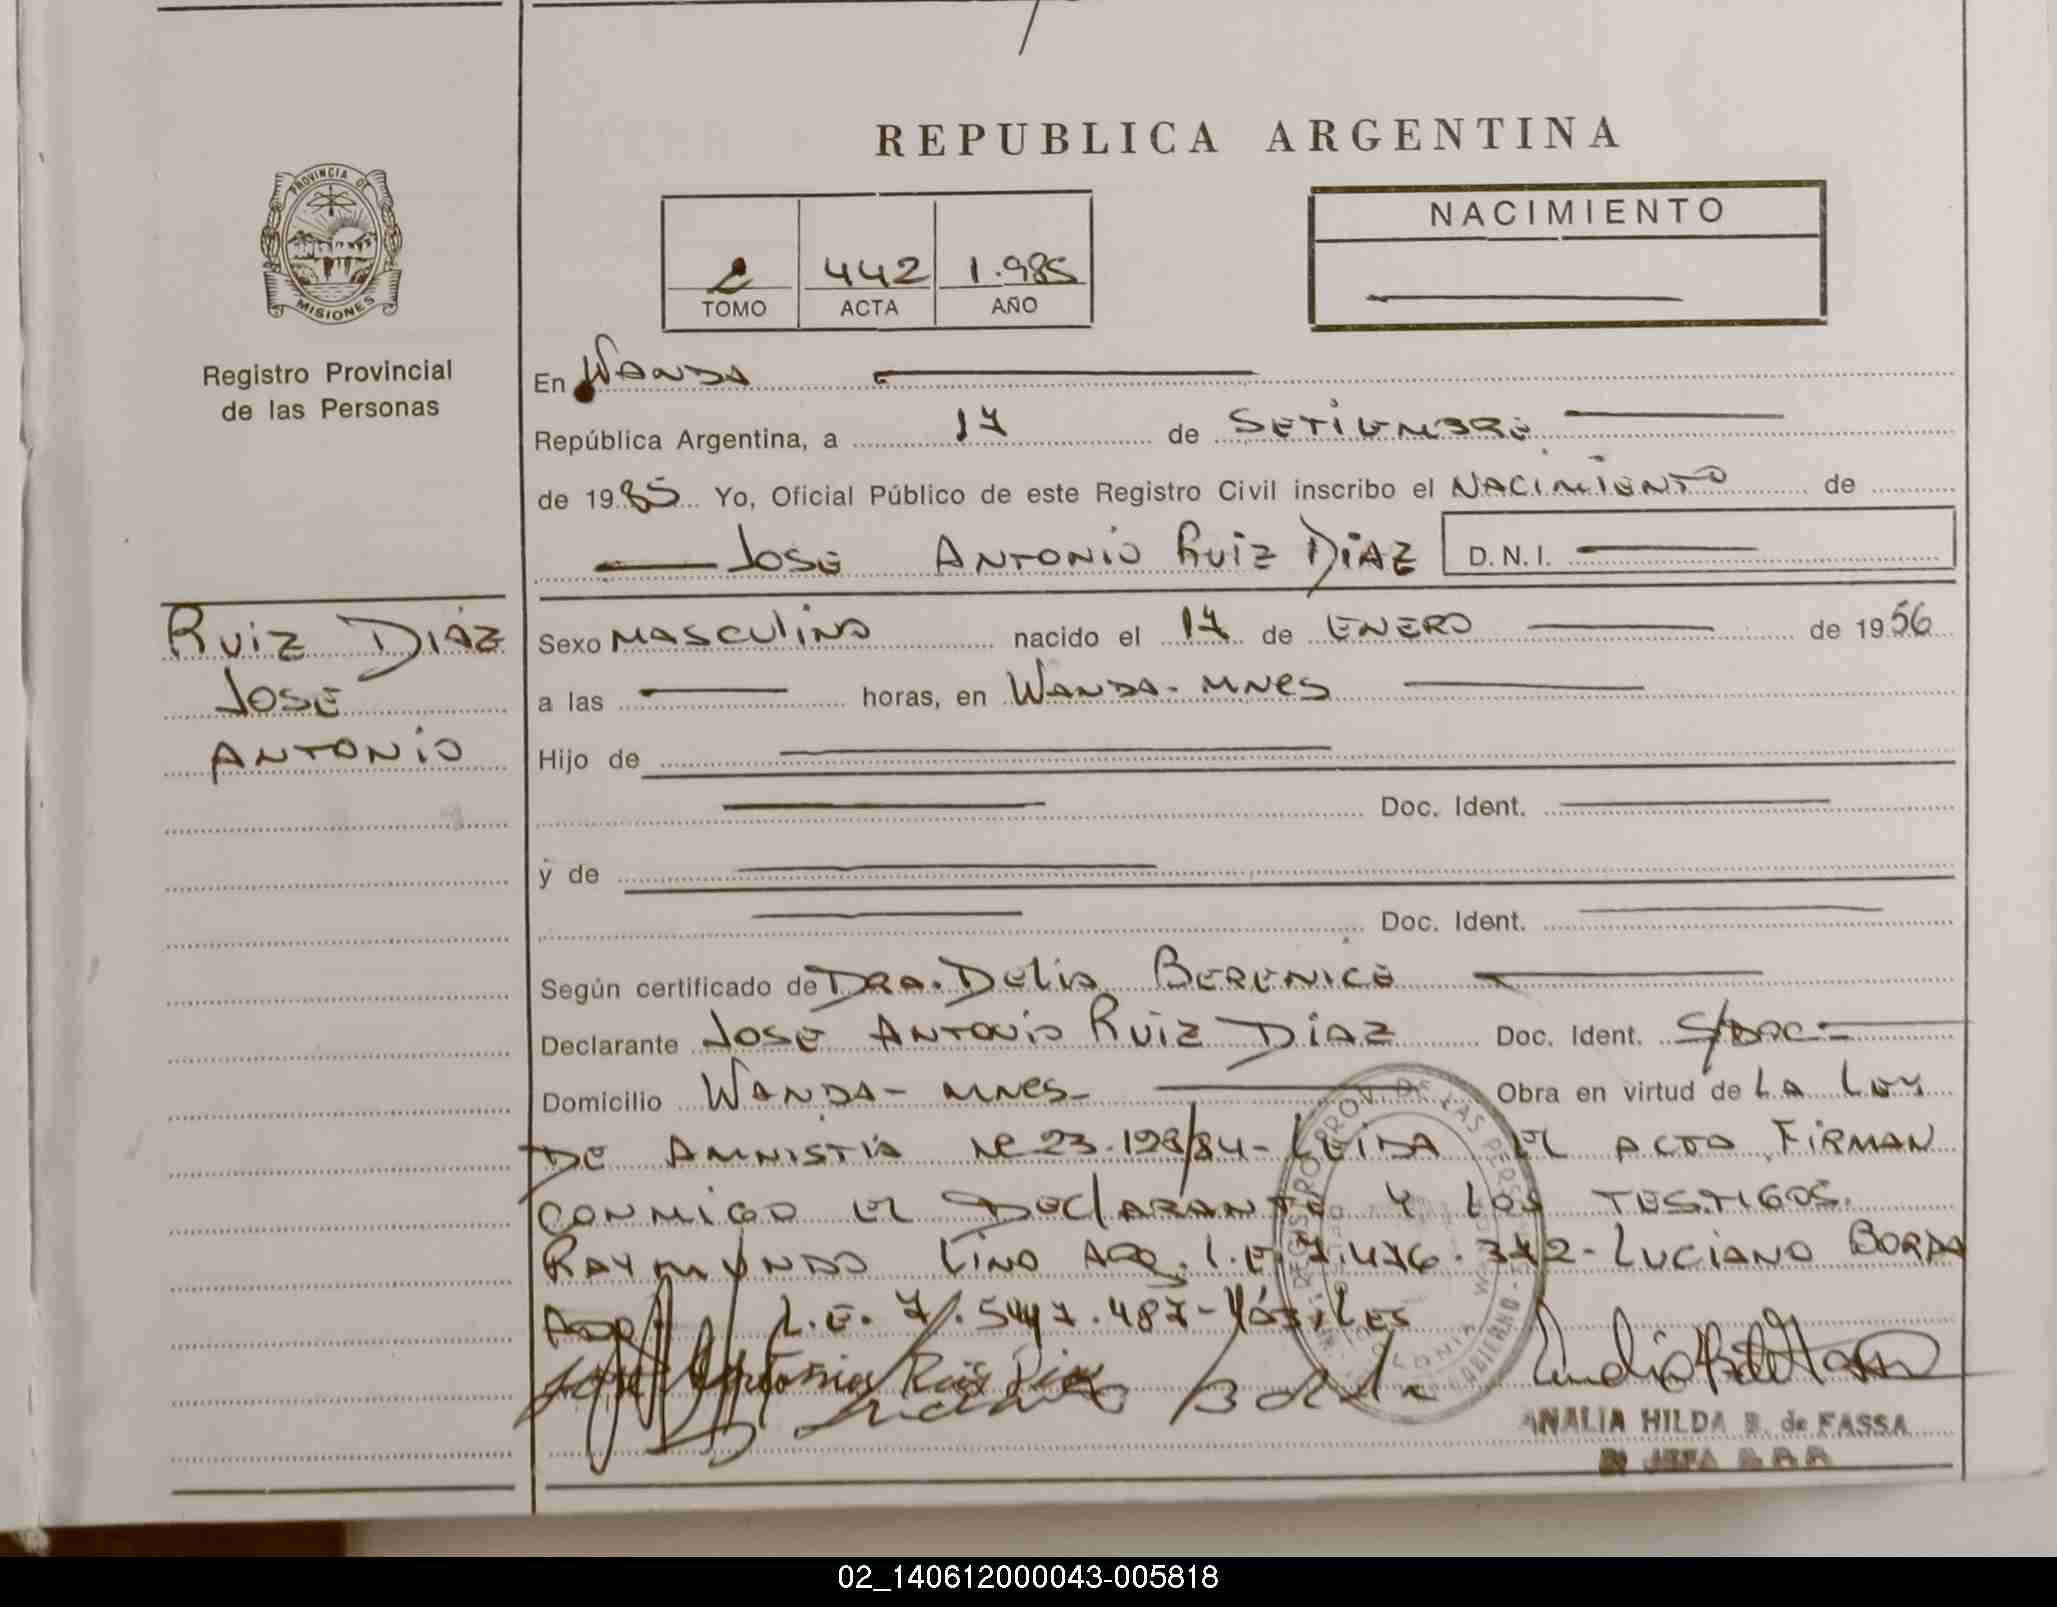 REPUBLICA ARGENTINA
PROVINCIA DE
MISIONES
Registro Provincial
de las Personas
2 442 1.985
TOMO ACTA AÑO
NACIMIENTO
En WANDA
República Argentina, a 17 de SETIEMBRE
de 1985 Yo, Oficial Público de este Registro Civil inscribo el NACIMIENTO de
JOSE ANTONIO RUIZ DIAZ D.N.I.
RUIZ DIAZ
JOSE
ANTONIO
Sexo MASCULINO nacido el 17 de ENERO de 1956
a las horas, en WANDA - MNES
Hijo de
Doc. Ident.
y de
Doc. Ident.
Según certificado de DRA. DELIA BERENICE
Declarante JOSE ANTONIO RUIZ DIAZ Doc. Ident. S/DOC
Domicilio WANDA - MNES - Obra en virtud de LA LEY
DE AMNISTIA Nº 23.128/84 - LEIDA EL ACTA FIRMAN
CONMIGO EL DECLARANTE Y LOS TESTIGOS.
RAYMUNDO LINO ARG. L.E. 7.476.372 - LUCIANO BORDA
ARG. L.E. 7.547.487 - HÁBILES
Jose Antonio Ruiz Diaz
Luciano Borda
ANALIA HILDA B. de FASSA
02_140612000043-005818